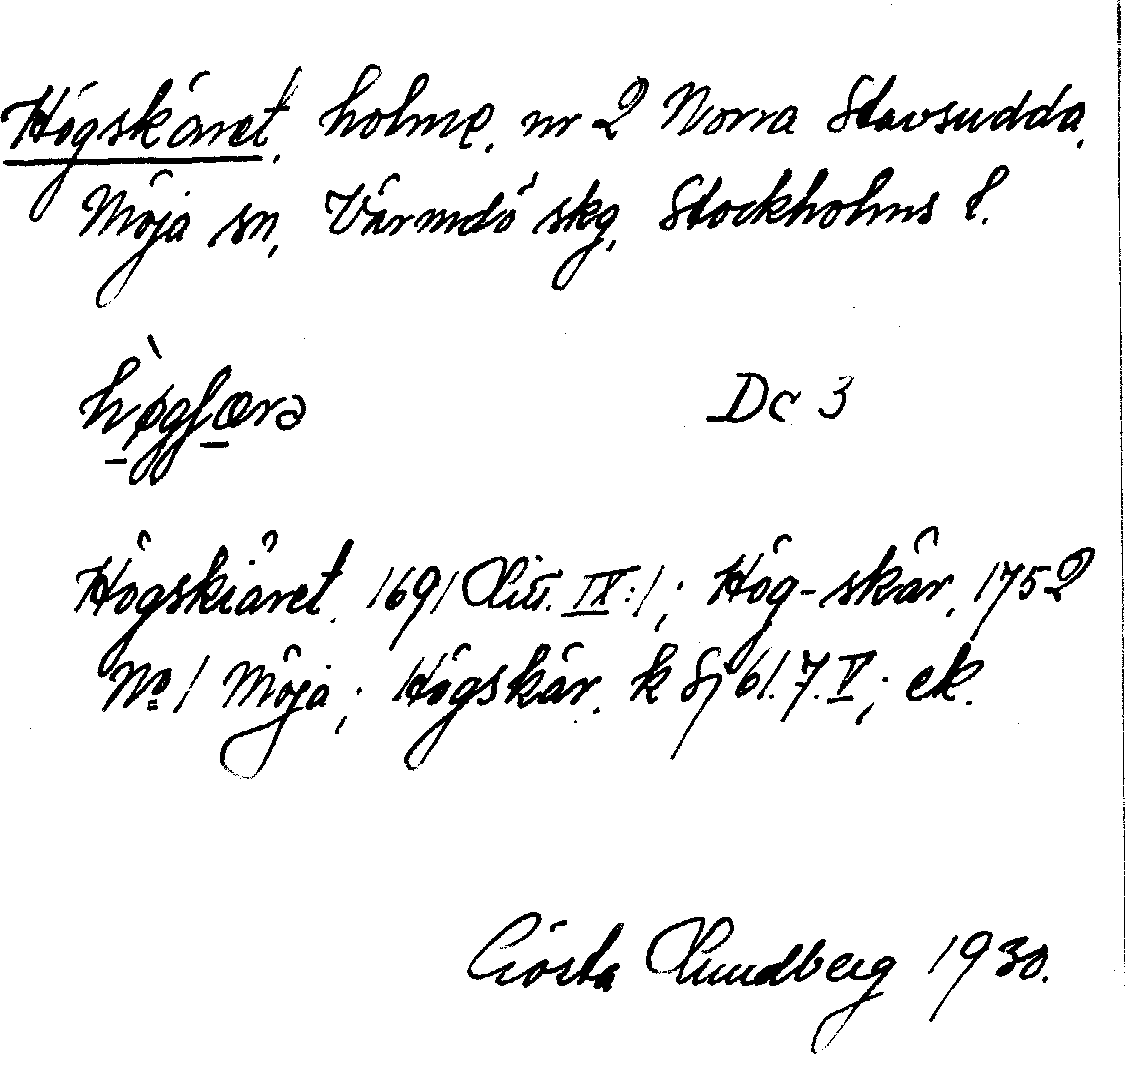 Högskäret, holme, nr 2 Norra Stavsudda,
Möja sn, Värmdö skg, Stockholms l.
hø̱̀gʃæ̱rə Dc 3
Högskiäret. 1691 Litt. IX:1; Hög-skär, 1752
No 1 Möja; Högskär. k Sj 61.7.V; ek.
Gösta Lundberg 1930.